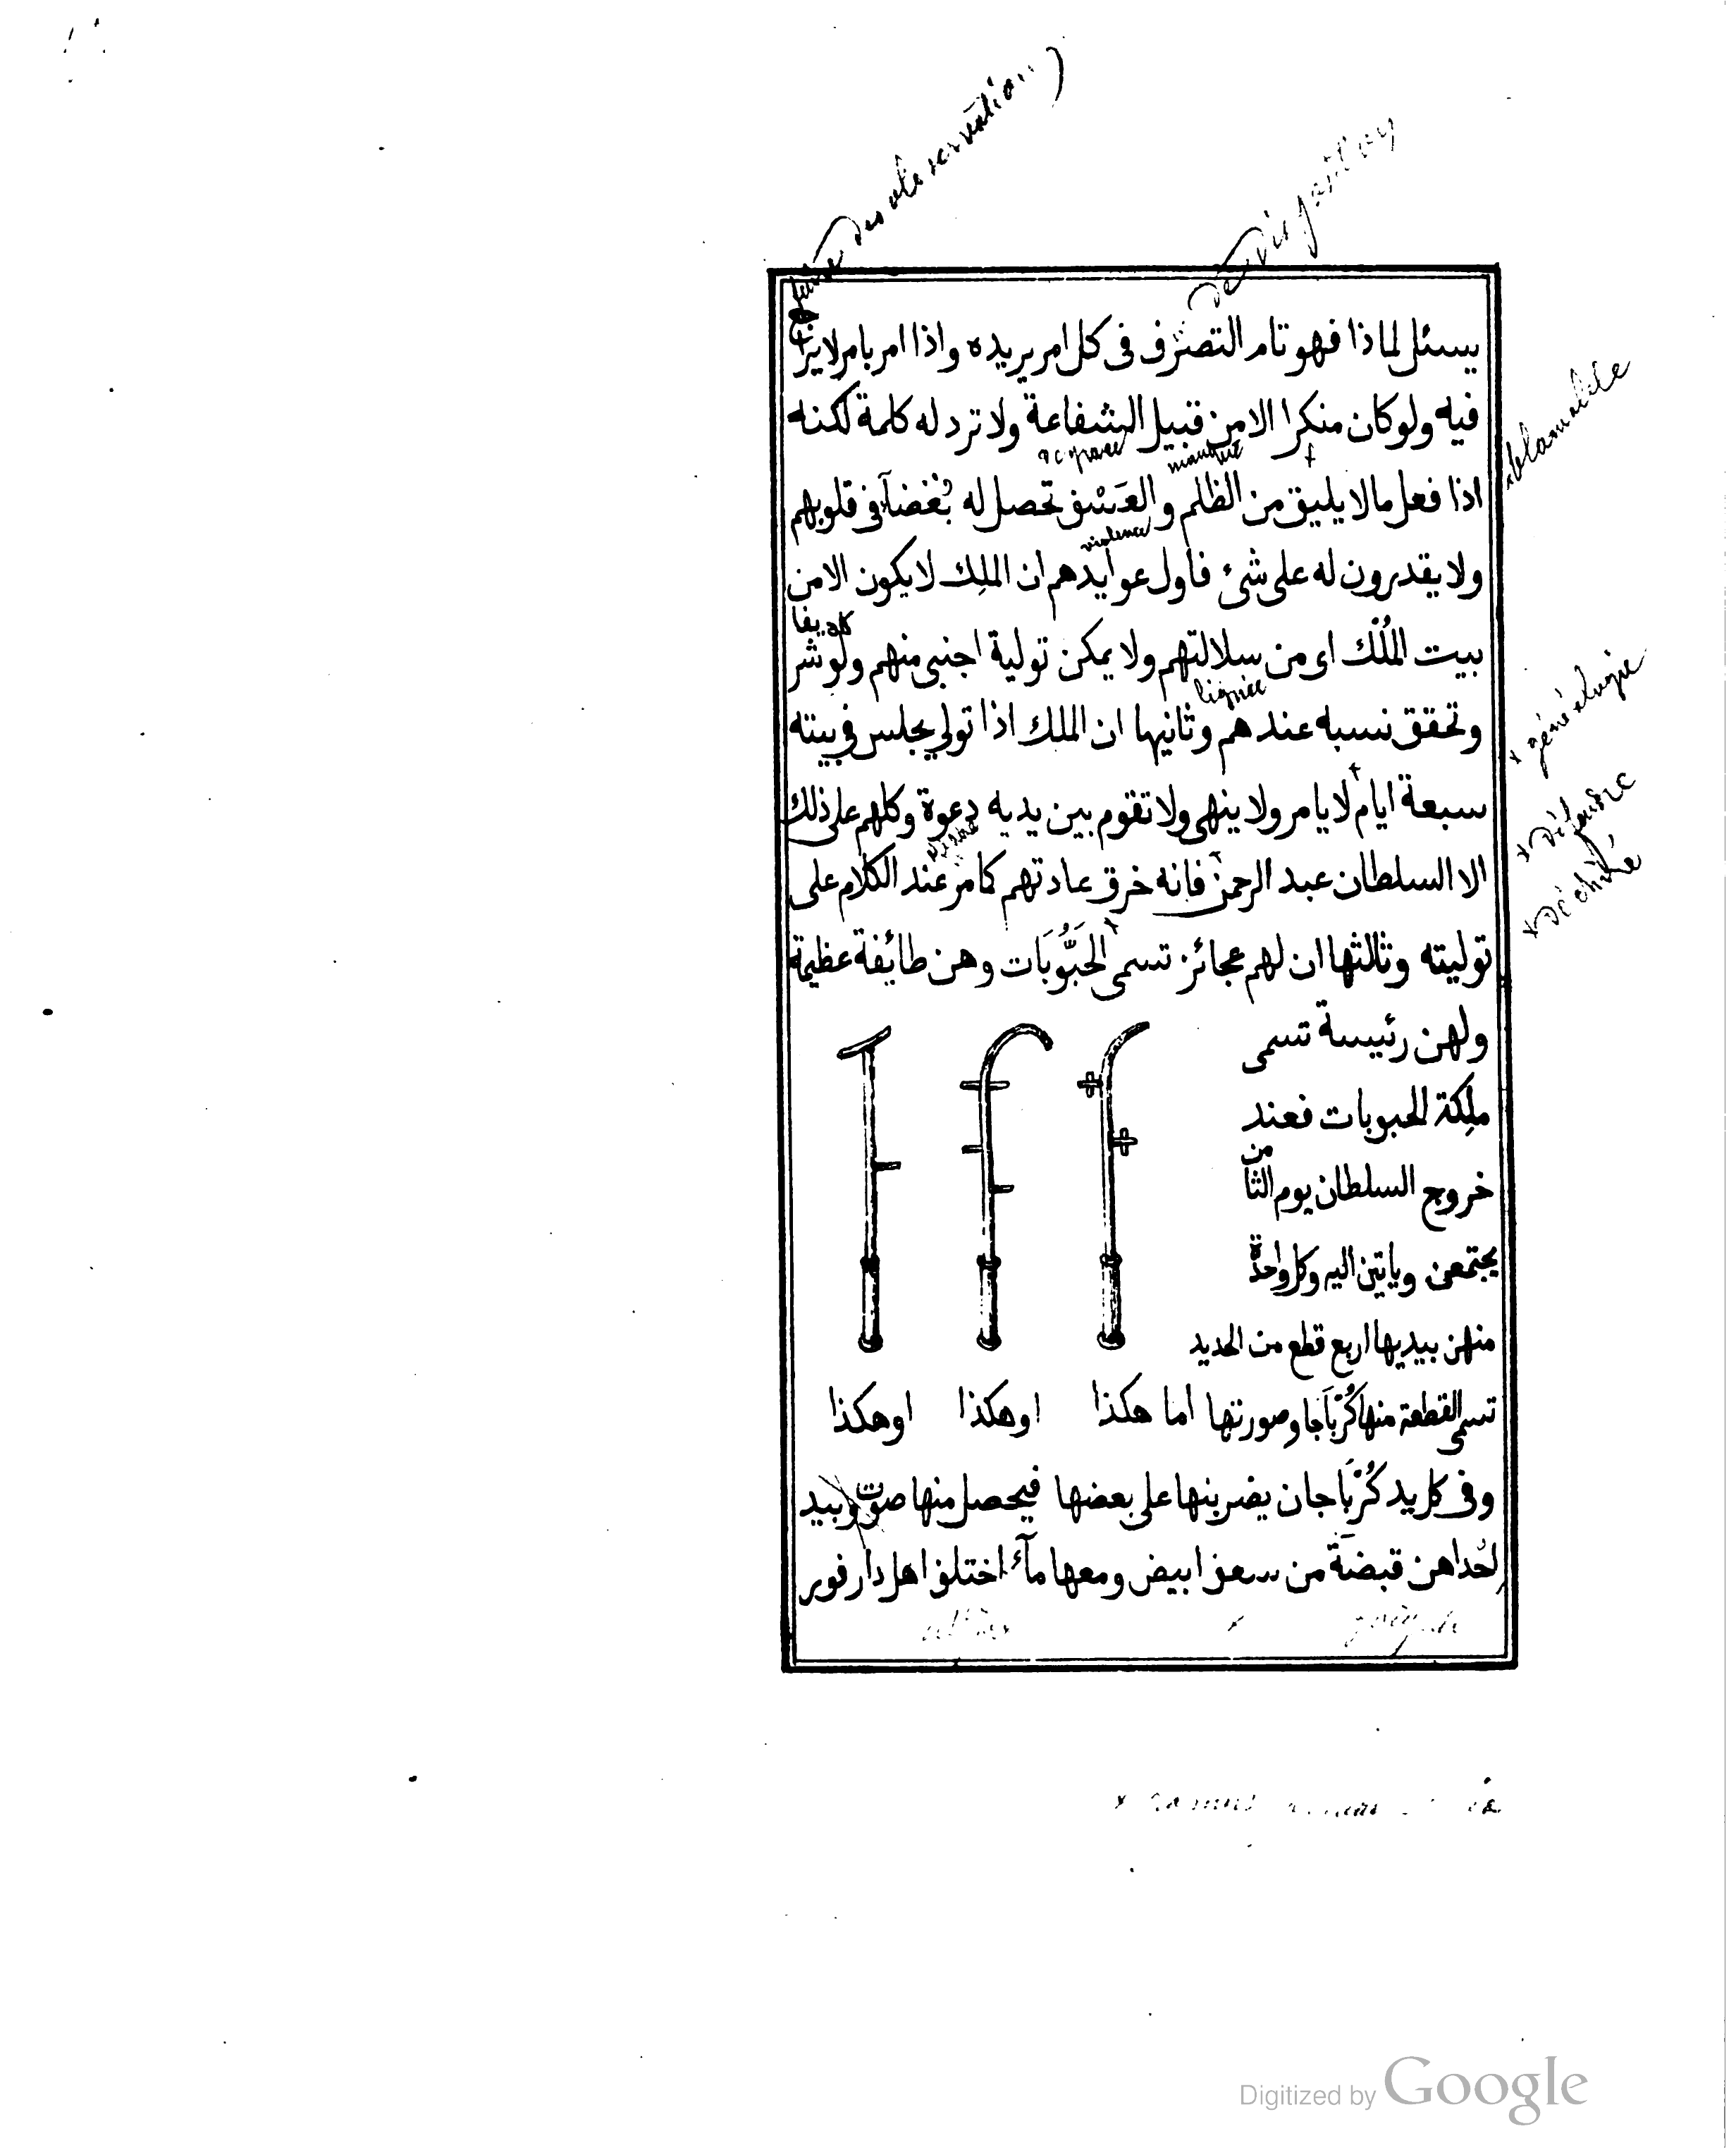 faire des observations)
يسئل لماذا فهو تام التصرف فى كل امر يريده واذا امر بامر لا يراجع
فيه ولو كان منكرا الا من قبيل الشفاعة ولا ترد له كلمة لكنه
blamable
de grace
manque
اذا فعل ما لا يليق من الظلم والعَسْف تحصل له بُغضآ فى قلوبهم
violence
ولا يقدرون له على شئ فاول عوايدهم ان الملِك لا يكون الا من
بيت المُلْك اى من سلالتهم ولا يمكن تولية اجنبى منهم ولو كان شريفا
lignée
x généalogie
وتحقق نسبه عندهم وثانيها ان الملك اذا تولى يجلس فى بيته
سبعة ايام لا يامر ولا ينهى ولا تقوم بين يديه دعوة وكلهم على ذلك
x défendre
الا السلطان عبد الرحمن فانه خرق عادتهم كما مر عند الكلام على
x déchiré
توليته وثالثها ان لهم عجائز تسمى الحَبُّوبَات وهن طائفة عظيمة
ولهن رئيسة تسمى
ملِكة الحبوبات فعند
خروج السلطان يوم الثامن
يجتمعن وياتين اليه وكل واحدة
منهن بيديها اربع قطع من الحديد
تسمى القطعة منها كُرْبَاجا وصورتها اما هكذا او هكذا او هكذا
وفى كل يد كُرْبَاجان يضربنها على بعضها فيحصل منها صوت وبيد
احْداهن قبضَة من سعف ابيض ومعها مآء اختلف اهل دارفور
poignée
Digitized by Google